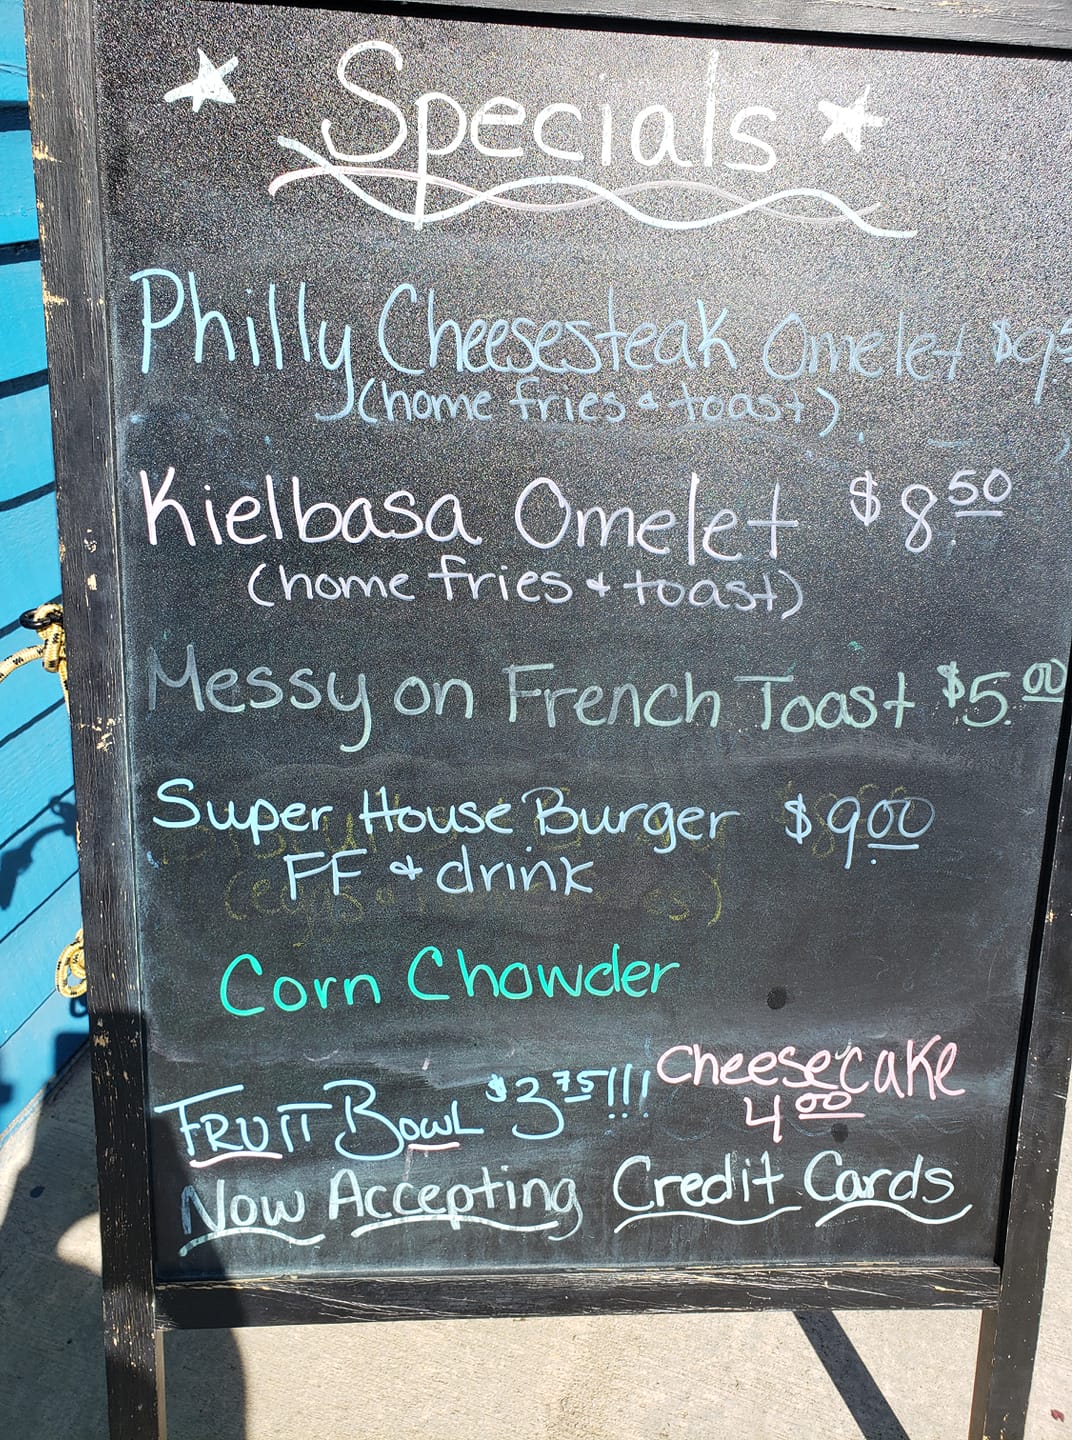 Specials
Philly Cheesesteak Omelet
(home fries & toast)
Kielbasa Omelet $8.50
(home fries & toast)
Messy on French Toast $5.00
Super House Burger $9.00
FF & drink
Corn Chowder
FRUIT BOWL $3.75!!!
Cheesecake
4.00
Now Accepting Credit Cards